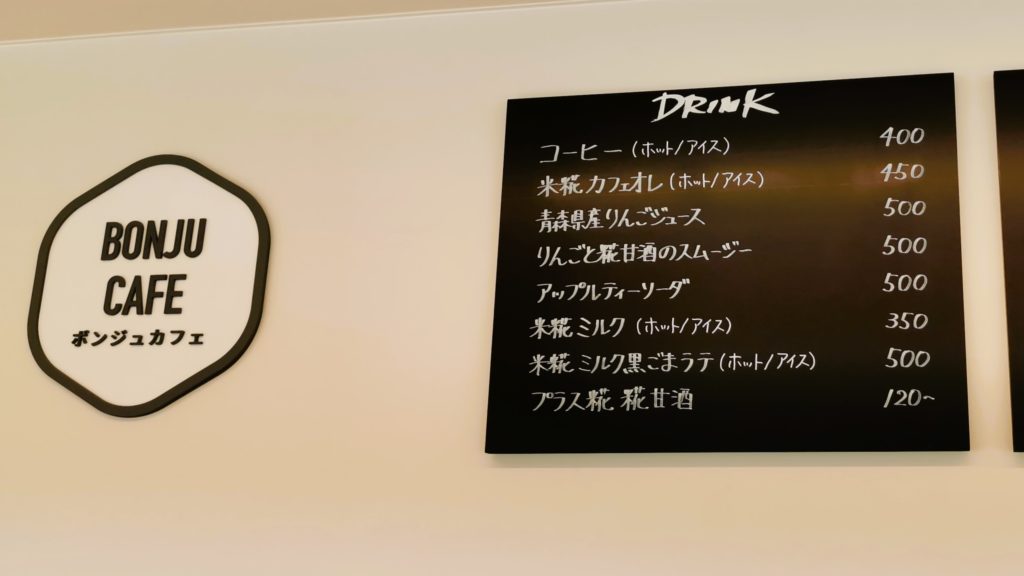 BONJU
CAFE
ボンジュカフェ
DRINK
コーヒー(ホット/アイス) 400
米糀カフェオレ(ホット/アイス) 450
青森県産りんごジュース 500
りんごと糀甘酒のスムージー 500
アップルティーソーダ 500
米糀ミルク(ホット/アイス) 350
米糀ミルク黒ごまラテ(ホット/アイス) 500
プラス糀 糀甘酒 120~